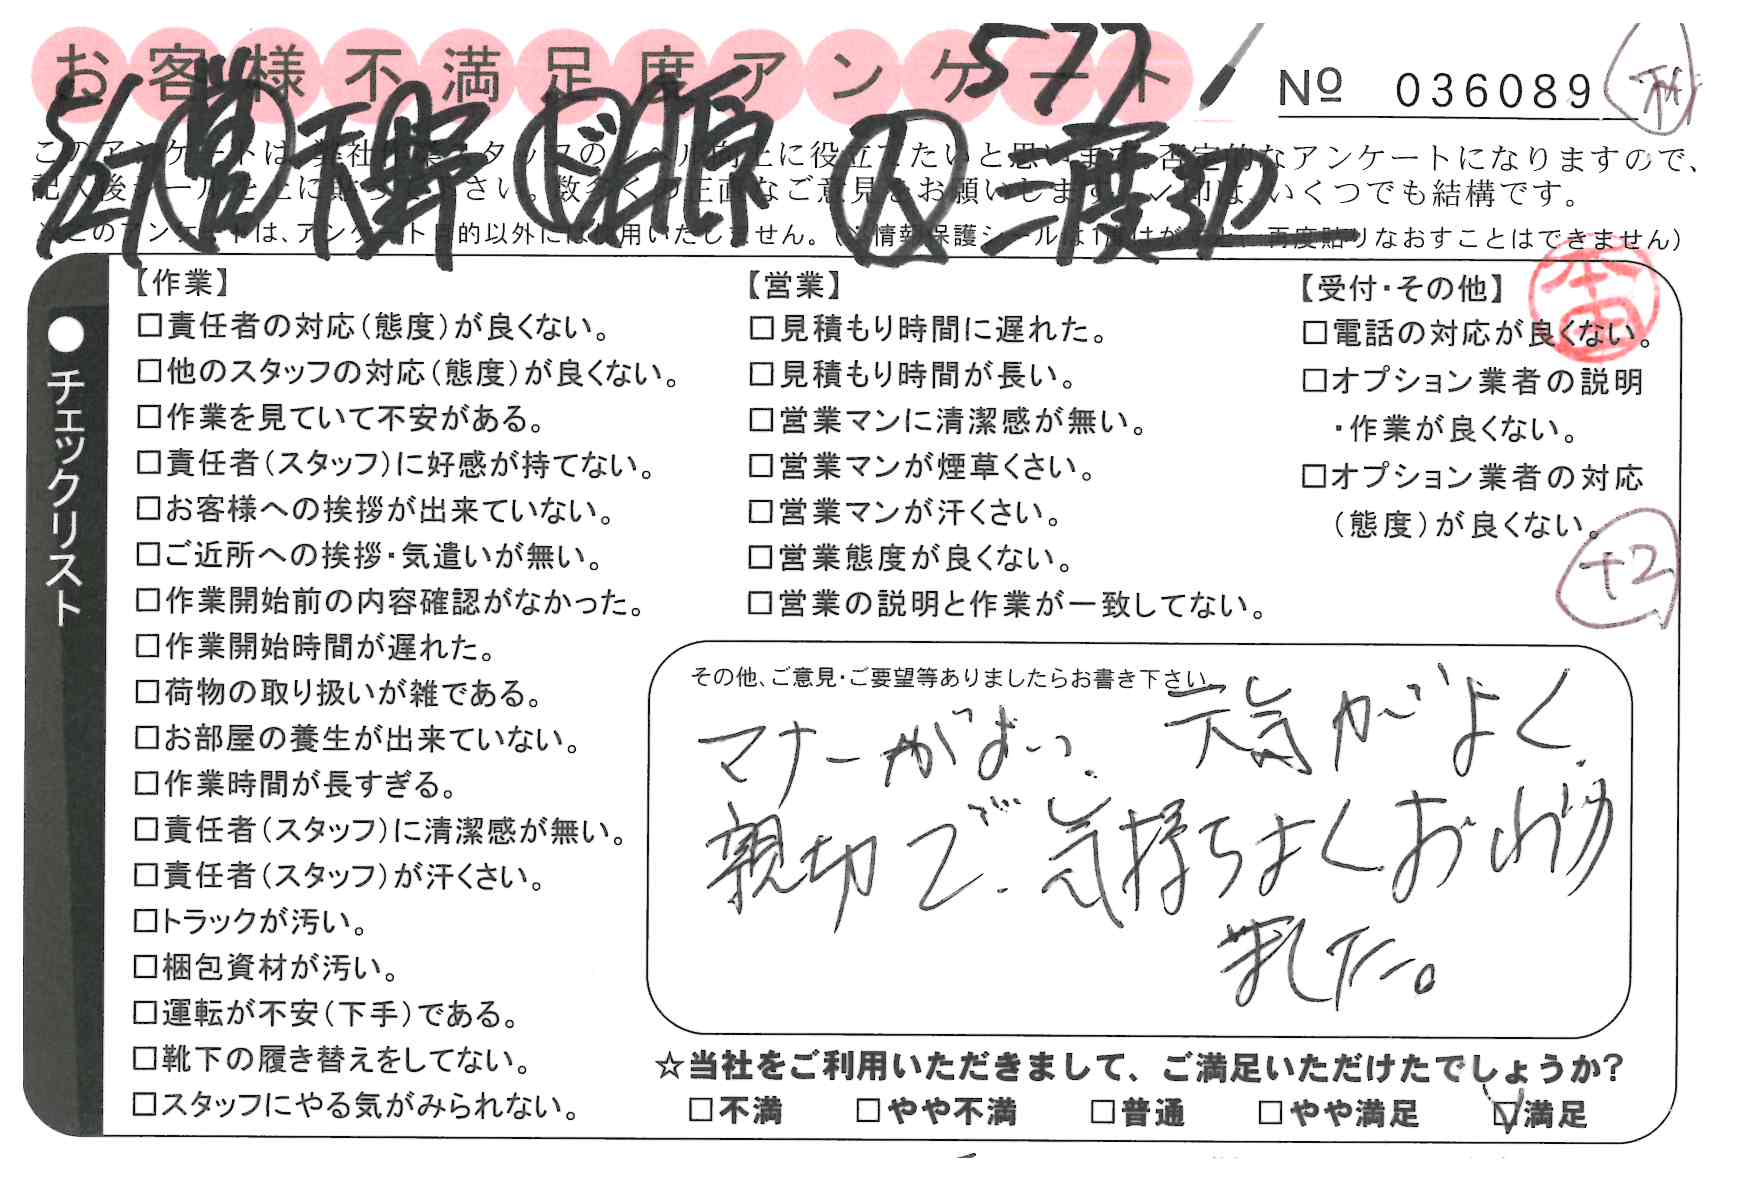 お客様不満足度アンケート
577
No 036089
5/27 営 天野 ド 萩原 人 三渡
このアンケートは、弊社作業スタッフのレベル向上に役立てたいと思います。否定的なアンケートになりますので、
記入後シールを上に貼ってください。数多くの正直なご意見をお願いします。✓印は、いくつでも結構です。
※このアンケートは、アンケート目的以外には使用いたしません。(※情報保護シールは1度はがすと、再度貼りなおすことはできません)
●チェックリスト
【作業】
□責任者の対応(態度)が良くない。
□他のスタッフの対応(態度)が良くない。
□作業を見ていて不安がある。
□責任者(スタッフ)に好感が持てない。
□お客様への挨拶が出来ていない。
□ご近所への挨拶・気遣いが無い。
□作業開始前の内容確認がなかった。
□作業開始時間が遅れた。
□荷物の取り扱いが雑である。
□お部屋の養生が出来ていない。
□作業時間が長すぎる。
□責任者(スタッフ)に清潔感が無い。
□責任者(スタッフ)が汗くさい。
□トラックが汚い。
□梱包資材が汚い。
□運転が不安(下手)である。
□靴下の履き替えをしてない。
□スタッフにやる気がみられない。
【営業】
□見積もり時間に遅れた。
□見積もり時間が長い。
□営業マンに清潔感が無い。
□営業マンが煙草くさい。
□営業マンが汗くさい。
□営業態度が良くない。
□営業の説明と作業が一致してない。
【受付・その他】
本田
□電話の対応が良くない。
□オプション業者の説明
・作業が良くない。
□オプション業者の対応
(態度)が良くない。
+2
その他、ご意見・ご要望等ありましたらお書き下さい。
マナーがよい、元気がよく、
親切で、気持ちよくお願い
ました。
☆当社をご利用いただきまして、ご満足いただけたでしょうか?
□不満 □やや不満 □普通 □やや満足 ☑満足